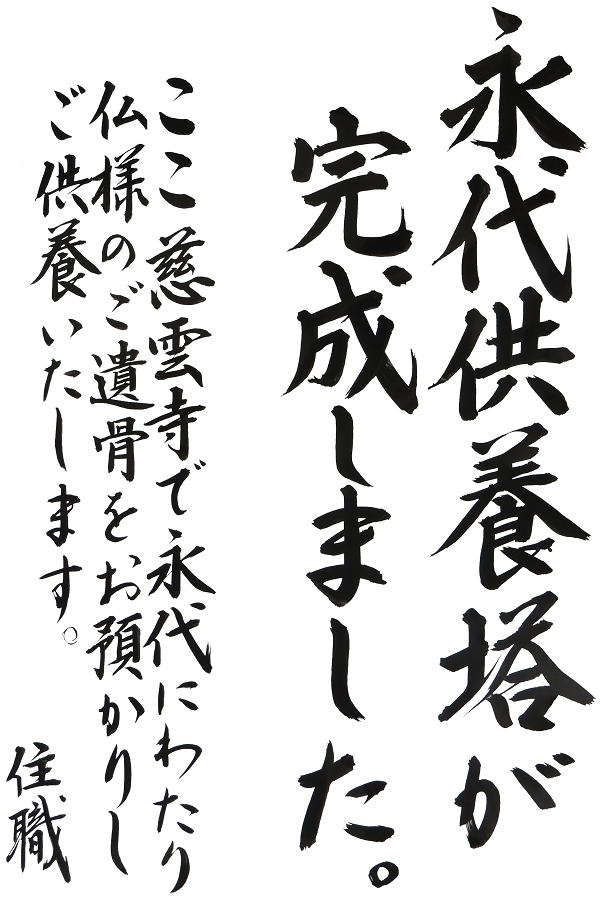 永代供養塔が
完成しました。
ここ慈雲寺で永代にわたり
仏様のご遺骨をお預かりし
ご供養いたします。
住職